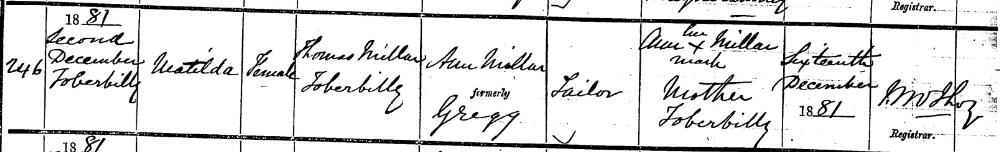 Registrar.
246
1881
Second
December
Toberbilly
Matilda
Female
Thomas Millar
Toberbilly
Ann Millar
formerly
Gregg
Tailor
Ann her X Millar
mark
Mother
Toberbilly
Sixteenth
December
1881
Registrar.
1881